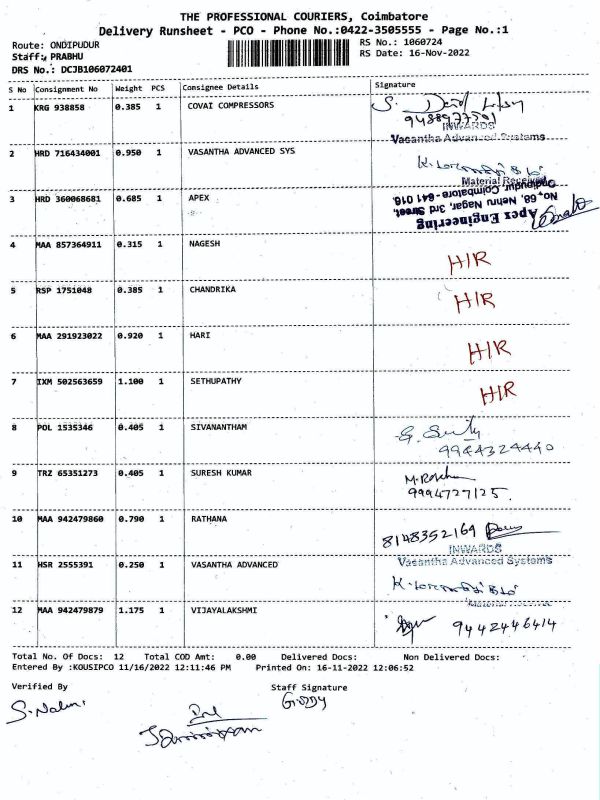 THE PROFESSIONAL COURIERS, Coimbatore
Delivery Runsheet - PCO - Phone No.:0422-3505555 - Page No.:1
Route: ONDIPUDUR
RS No.: 1060724
Staff: PRABHU
RS Date: 16-Nov-2022
DRS No.: DCJB106072401
S No Consignment No Weight PCS Consignee Details Signature
1 KRG 938858 0.385 1 COVAI COMPRESSORS
9488977501
INWARDS
Vasantha Advanced Systems
2 HRD 716434001 0.950 1 VASANTHA ADVANCED SYS
Material Received
3 HRD 360068681 0.685 1 APEX
Apex Engineering
No,68, Nehru Nagar, 3rd Street,
Ondipudur, Coimbatore - 641 016.
4 MAA 857364911 0.315 1 NAGESH H/R
5 RSP 1751048 0.385 1 CHANDRIKA H/R
6 MAA 291923022 0.920 1 HARI H/R
7 IXM 502563659 1.100 1 SETHUPATHY H/R
8 POL 1535346 0.405 1 SIVANANTHAM
9944324440
9 TRZ 65351273 0.405 1 SURESH KUMAR
9994727125.
10 MAA 942479860 0.790 1 RATHANA 8148352169
INWARDS
11 HSR 2555391 0.250 1 VASANTHA ADVANCED Vasantha Advanced Systems
12 MAA 942479879 1.175 1 VIJAYALAKSHMI 9442446414
Total No. Of Docs: 12 Total COD Amt: 0.00 Delivered Docs: Non Delivered Docs:
Entered By :KOUSIPCO 11/16/2022 12:11:46 PM Printed On: 16-11-2022 12:06:52
Verified By Staff Signature